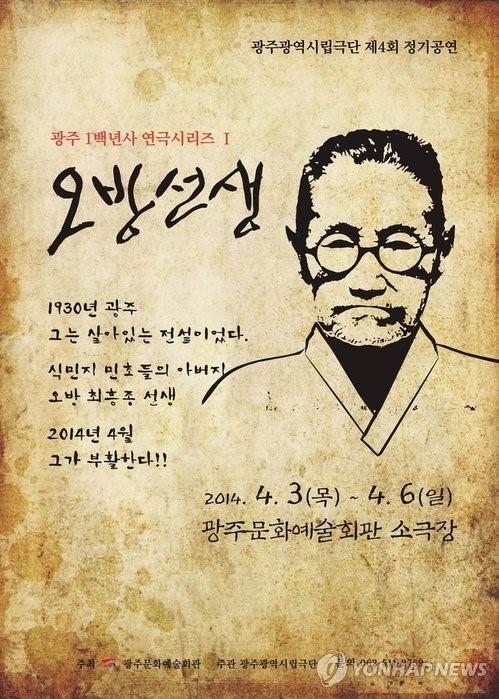 광주광역시립극단 제4회 정기공연
광주 1백년사 연극시리즈 I
오방선생
1930년 광주
그는 살아있는 전설이었다.
식민지 민초들의 아버지
오방 최흥종 선생
2014년 4월
그가 부활한다!!
2014. 4. 3(목) ~ 4. 6(일)
광주문화예술회관 소극장
주최 광주문화예술회관 주관 광주광역시립극단
YONHAPNEWS